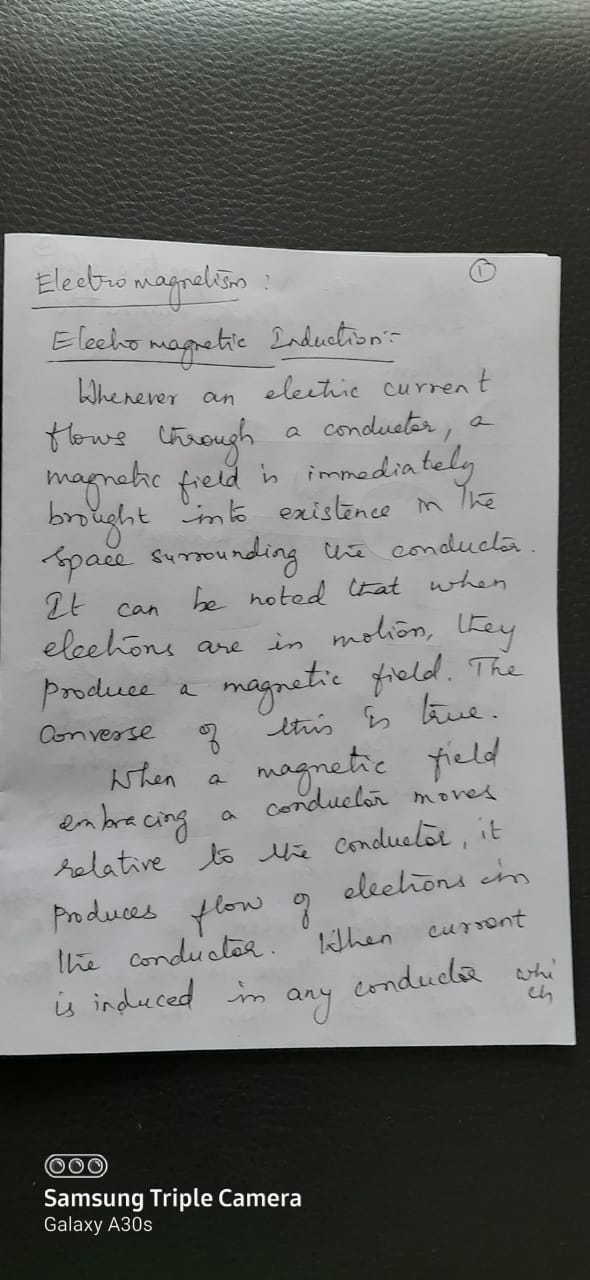 Electromagnetism :
1
Electromagnetic Induction :-
Whenever an electric current
flows through a conductor, a
magnetic field is immediately
brought into existence in the
space surrounding the conductor.
It can be noted that when
electrons are in motion, they
produce a magnetic field. The
converse of this is true.
When a magnetic field
embracing a conductor moves
relative to the conductor, it
produces flow of electrons in
the conductor. When current
is induced in any conductor whi
ch
Samsung Triple Camera
Galaxy A30s